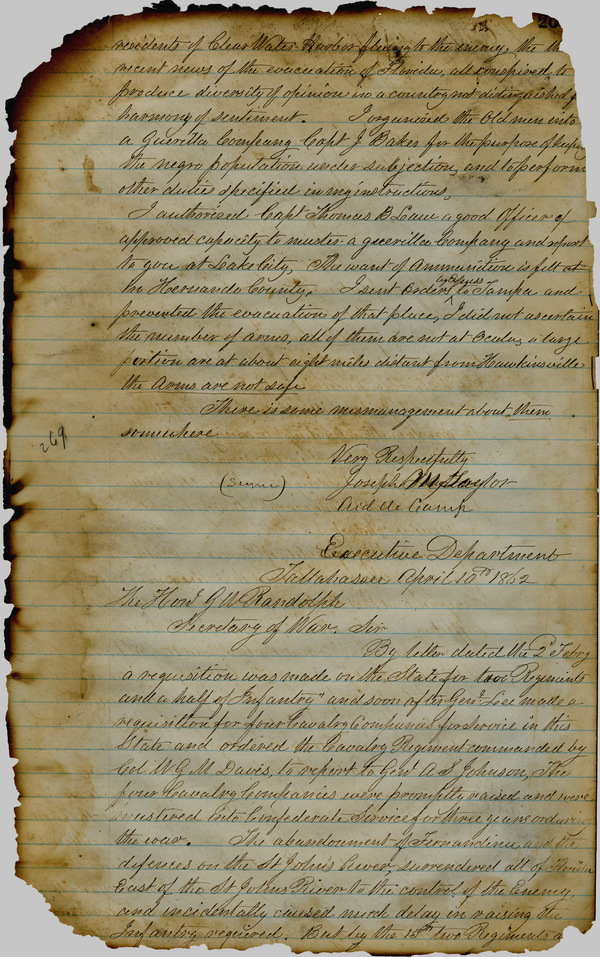 20
residents of Clear Water Harbor flying to the enemy, the
recent news of the evacuation of Florida, all conspired to
produce diversity of opinion in a country not distinguished
harmony of sentiment. I organized the Old men into
a Guerilla Company Capt J. Baker for the purpose of keeping
the negro population under subjection, and to perform
other duties specified in my instructions,
I authorised Capt Thomas B Law a good Officer of
approved capacity to muster a guerilla Company and report
to you at Lake City, The want of Ammunition is felt at
in Hernando County. I sent Orders to Tampa and
prevented the evacuation of that place, I did not ascertain
the number of arms, all of them are not at Ocala, a large
portion are at about eight miles distant from Hawkinsville
the Arms are not safe
There is some mismanagement about them
somewhere
269
Very Respectfully
Joseph M Taylor
Aid de Camp
Executive Department
Tallahassee April 10th 1862
The Honl G W Randolph
Secretary of War. Sir
By letter dated the 2d Febry
a requisition was made on the State for two Regiments
and a half of Infantry" and soon after Genl Lee made a
requisition for four Cavalry Companies for Service in this
State and ordered the Cavalry Regiment commanded by
Col. W G M Davis, to report to Genl A S Johnson, The
four Cavalry Companies were promptly raised and were
mustered into Confederate Service for three years or during
the war. The abandonment of Fernandina, and the
defences on the St John's River, surrendered all of Florida
East of the St Johns River to the control of the Enemy,
and incidentally caused much delay in raising the
Infantry required. But by the 15th two Regiments a